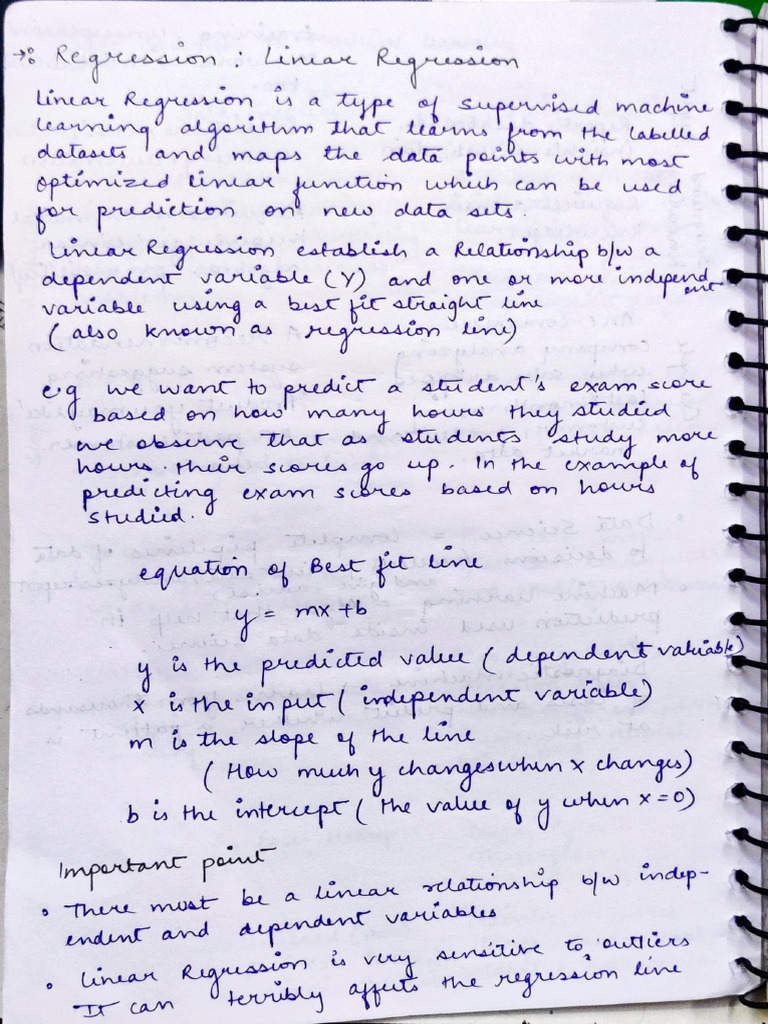 →: Regression : Linear Regression
Linear Regression is a type of supervised machine
learning algorithm that learns from the labelled
datasets and maps the data points with most
optimized linear function which can be used
for prediction on new data sets.
Linear Regression establish a Relationship b/w a
dependent variable (Y) and one or more independent
variable using a best fit straight line
(also known as regression line)
e.g we want to predict a student's exam score
based on how many hours they studied
we observe that as students study more
hours. their scores go up. In the example of
predicting exam scores based on hours
studied.
equation of Best fit line
y = mx + b
y is the predicted value (dependent variable)
x is the input (independent variable)
m is the slope of the line
(How much y changes when x changes)
b is the intercept (the value of y when x = 0)
Important point
• There must be a linear relationship b/w indep-
endent and dependent variables
• Linear Regression is very sensitive to outliers
It can terribly affects the regression line